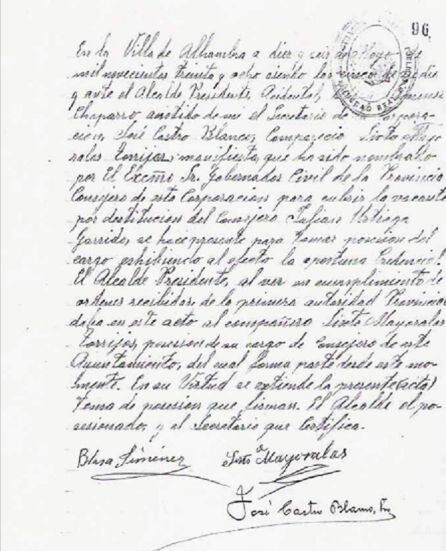 96
En la Villa de Alhambra a diez y seis de Mayo de
mil novecientos treinta y ocho siendo las cinco de
y ante el Alcalde Presidente, Accidental,
Chaparro, asistido de mi el Secretario de
cion, José Castro Blanco, Comparecio Sixto Mayo
rales Torrijos, manifiesta, que ha sido nombrado
por El Excmo Sr. Gobernador Civil de la Provincia
Consejero de esta Corporacion para cubrir la vacante
por destitucion del Consejero Julian Ortega
Garrido, se hace presente para tomar posesion del
cargo exhibiendo al efecto la oportuna Credencial.
El Alcalde Presidente, al ver en cumplimiento de
ordenes recibidas de la primera autoridad Provincial
daba en este acto al compañero Sixto Mayorales
Torrijos, posesion de su cargo de Consejero de este
Ayuntamiento, del cual forma parte desde este mo-
mento. En su Virtud se extiende la presente acta
Toma de posesion que firman. El Alcalde el po-
sesionado, y el Secretario que Certifica.
Jiménez Sixto Mayoralas
José Castro Blanco